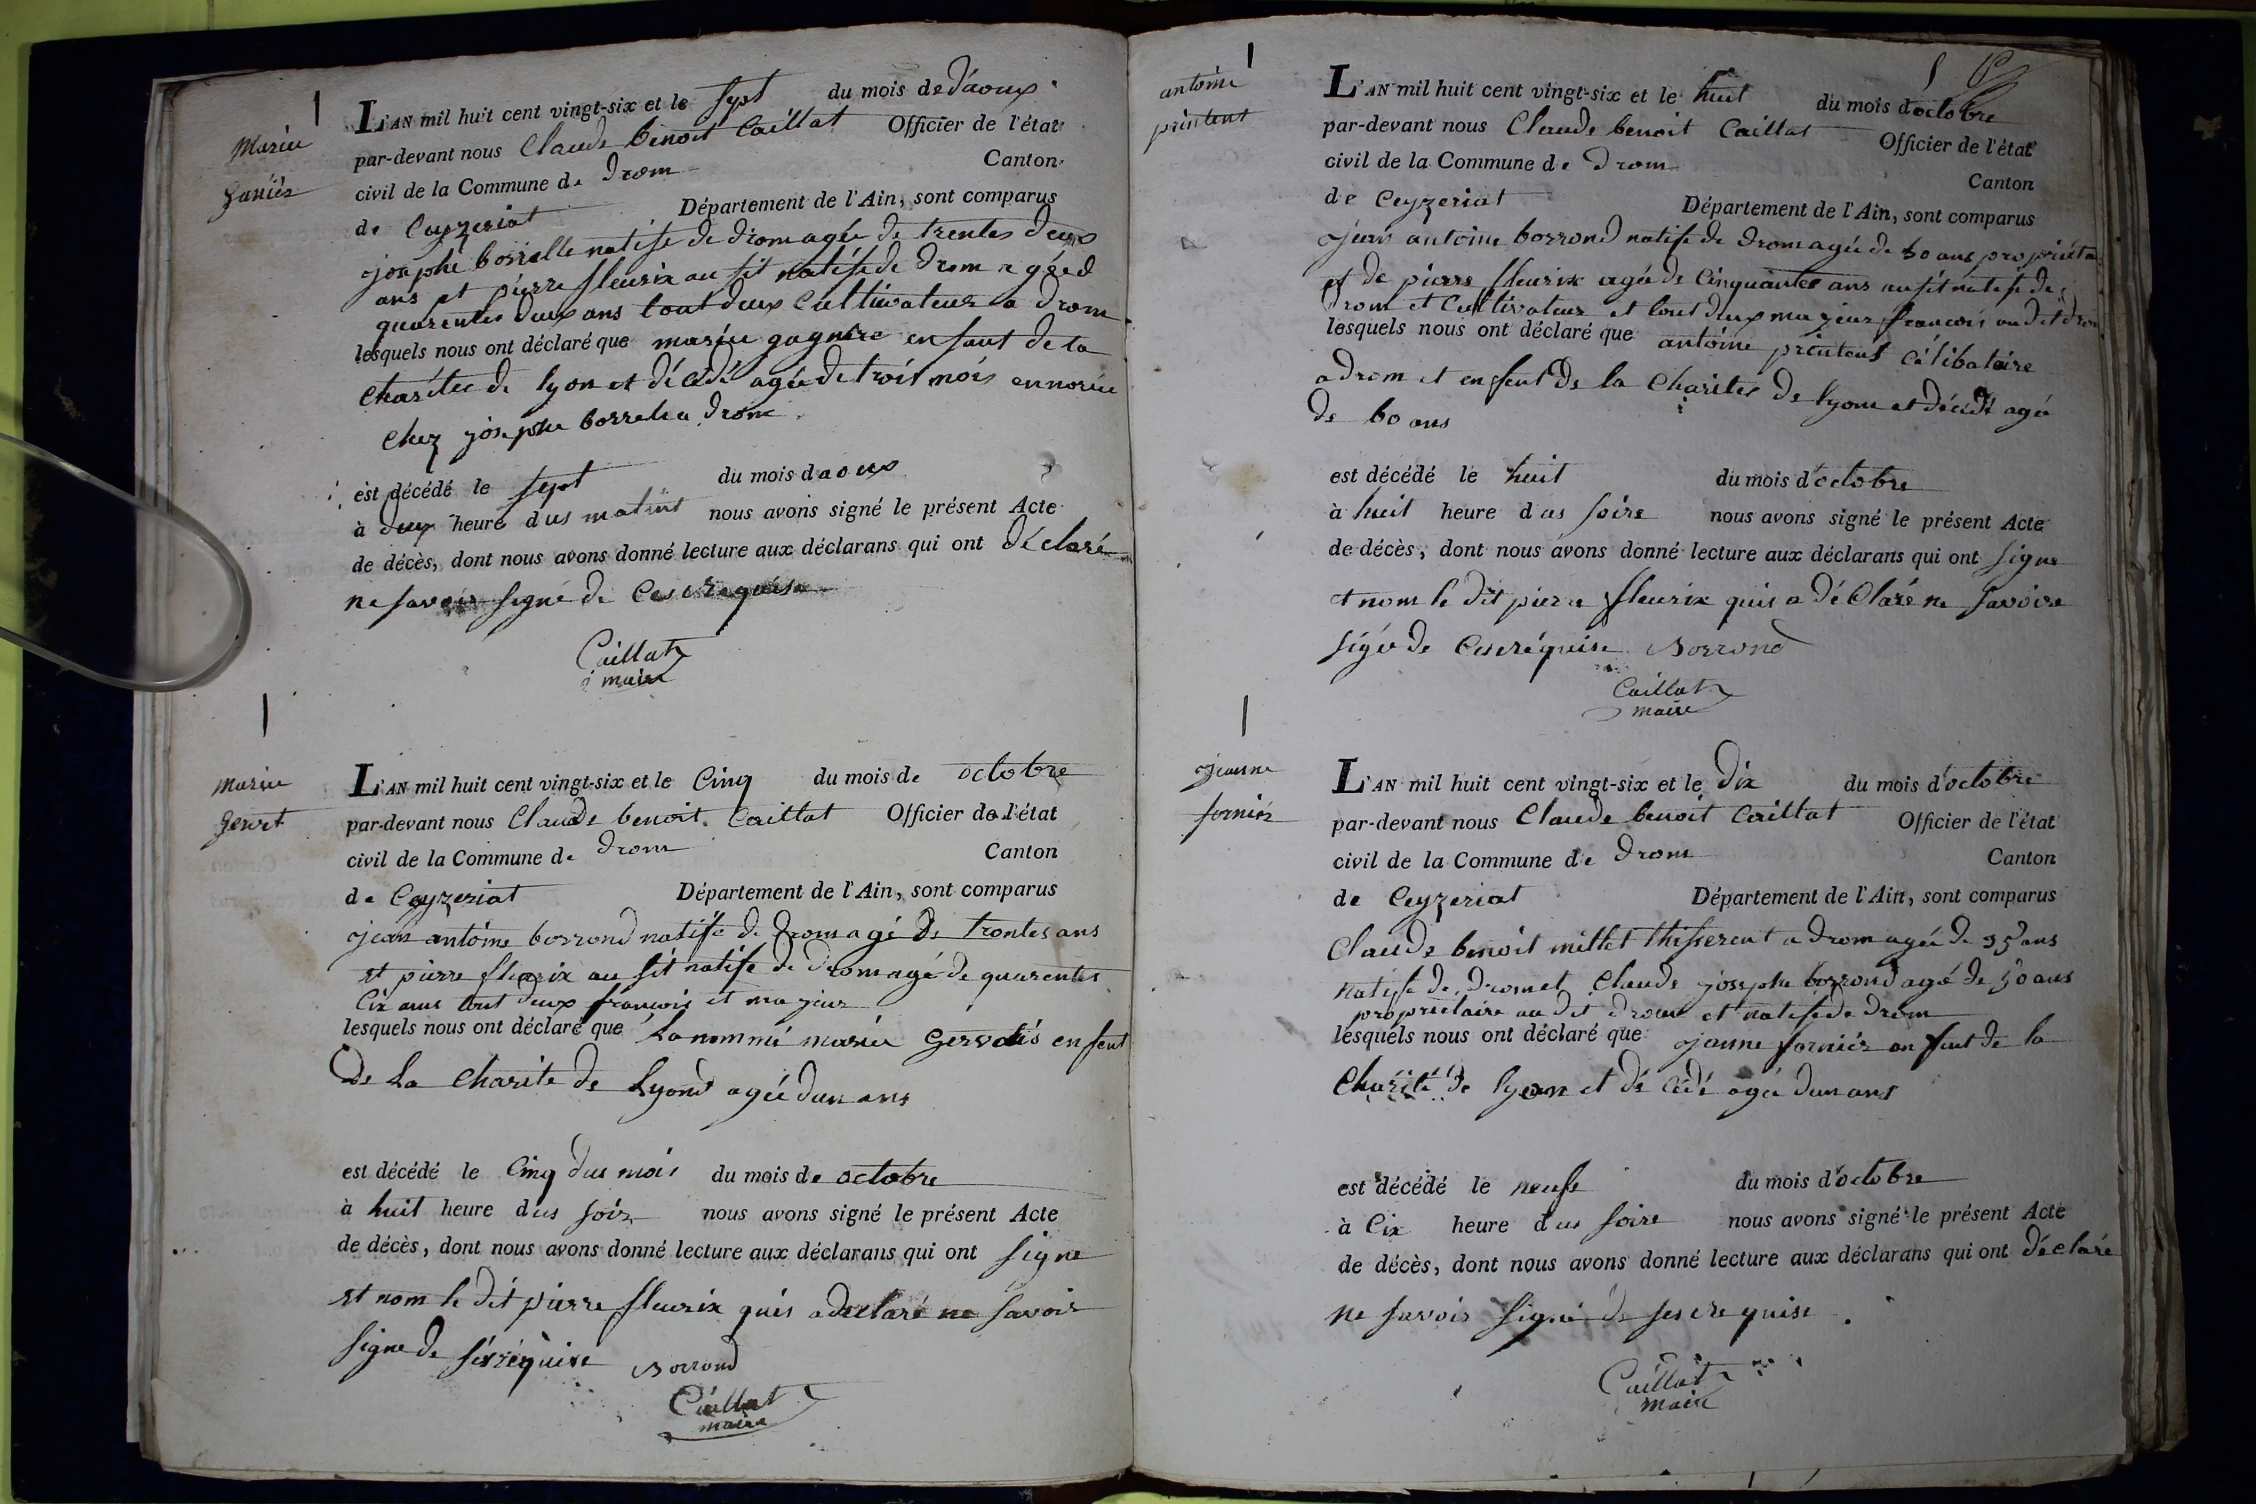 Marie
L'AN mil huit cent vingt-six et le sept du mois de d'aoux
par-devant nous Claude benoit Caillat Officier de l'état
civil de la Commune de drom Canton
de Ceyzeriat Département de l'Ain, sont comparus
josephe borrelle natife de drom agée de trentes deux
ans et pierre fleurix au sit natife de drom agée d
quarentes deux ans tout deux Cultivateur a drom
lesquels nous ont déclaré que mariee gagniere enfant de la
charitee de lyon et décédé agée de trois mois en norice
chez josephe borrel a drom
est décédé le sept du mois daoux
à deux heure dus matint nous avons signé le présent Acte
de décès, dont nous avons donné lecture aux déclarans qui ont déclaré
ne savoir signé de Ces requise
Caillat
maire
marie
L'AN mil huit cent vingt-six et le Cinq du mois de octobre
par-devant nous Claude benoit Caillat Officier de l'état
civil de la Commune de drom Canton
de Ceyzeriat Département de l'Ain, sont comparus
jean antoine borrond natife de drom agé de trentes ans
et pierre fleurix au sit natife de drom agé de quarentes
Cix ans tout deux francois et majeur
lesquels nous ont déclaré que La nommé mariee enfent
De La charite de Lyond agée dun ans
est décédé le Cinq dus mois du mois de octobre
à huit heure dus soir nous avons signé le présent Acte
de décès, dont nous avons donné lecture aux déclarans qui ont signe
et nom le dit pierre fleurix quis a declaré ne savoir
signe de ses requise Borrond
Caillat
maire
antoine
printent
L'AN mil huit cent vingt-six et le huit du mois d'octobre
par-devant nous Claude benoit Caillat Officier de l'état
civil de la Commune de drom Canton
de Ceyzeriat Département de l'Ain, sont comparus
jean antoine borrond natife de drom agée de 30 ans propriéta
et de pierre fleurix agée de Cinquantes ans au sit natife de
drom et Cultivateur et tout deux majeur francois au dit drom
lesquels nous ont déclaré que antoine printent célibataire
a drom et enfent de la Charitee de lyon et décédé agé
de 60 ans
est décédé le huit du mois d'octobre
à huit heure dus soire nous avons signé le présent Acte
de décès, dont nous avons donné lecture aux déclarans qui ont signe
et nom le dit pierre fleurix quis a déClaré ne savoire
sigée de Ces requise Borrond
Caillat
maire
jeanne
fornier
L'AN mil huit cent vingt-six et le dix du mois d'octobre
par-devant nous Claude benoit Caillat Officier de l'état
civil de la Commune de drom Canton
de Ceyzeriat Département de l'Ain, sont comparus
Claude benoit millet thisserent a drom agée de 35 ans
natife de drom et Claude josephe borrond agé de 50 ans
propriétaire au dit drom et natife de drom
lesquels nous ont déclaré que jeanne fornier enfent de la
Charité de lyon et décédé agée dun ans
est décédé le neufe du mois d'octobre
à Cix heure dus soire nous avons signé le présent Acte
de décès, dont nous avons donné lecture aux déclarans qui ont déclaré
ne savoir signé de ses requise
Caillat
maire